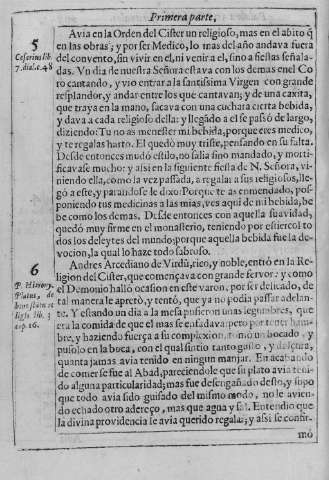 Primera parte,
5
Cesarius lib.
7. dial. c. 48
Avia en la Orden del Cister un religioso, mas en el abito q̃
en las obras; y por ser Medico, lo mas del año andava fuera
del convento, sin vivir en el, ni venir a el, sino a fiestas señala-
das. Un dia de nuestra Señora estava con los demas en el Co
ro cantando, y vio entrar a la santissima Virgen con grande
resplandor, y andar entre los que cantavan; y de una caxita,
que traya en la mano, sacava con una cuchara cierta bebida,
y dava a cada religioso della: y llegado a el se passò de largo,
diziendo: Tu no as menester mi bebida, porque eres medico,
y te regalas harto. El quedò muy triste, pensando en su falta.
Desde entonces mudò estilo, no salia sino mandado, y morti-
ficavase mucho: y assi en la siguiente fiesta de N. Señora, vi-
niendo ella, como la vez passada, a regalar a sus religiosos, lle-
gò a este, y parandose le dixo: Porque te as enmendado, pos-
poniendo tus medicinas a las mias, ves aqui de mi bebida, be
be como los demas. Desde entonces con aquella suavidad,
quedò muy firme en el monasterio, teniendo por estiercol to
dos los deleytes del mundo; porque aquella bebida fue la de-
vocion, la qual lo haze todo sabroso.
6
P. Hieron.
Platus, de
bono status re
ligio. lib. 3
cap. 16.
Andres Arcediano de Virdù, rico, y noble, entrò en la Re-
ligion del Cister, que començava con grande fervor: y como
el Demonio hallò ocasion en este varon, por ser delicado, de
tal manera le apretò, y tentò, que ya no podia passar adelan-
te. Y estando un dia a la mesa pusieron unas legumbres, que
era la comida de que el mas se enfadava, pero por tener ham-
bre, y haziendo fuerça a su complexion, tomò un bocado, y
pusolo en la boca, con el qual sintio tanto gusto, y dulçura,
quanta jamas avia tenido en ningun manjar. En acabando
de comer se fue al Abad, pareciendole que su plato avia teni-
do alguna particularidad; mas fue desengañado desto, y supo
que todo avia sido guisado del mismo modo, no le avien-
do echado otro adereço, mas que agua y sal. Entendio que
la divina providencia se avia querido regalar; y assi se confir-
mò